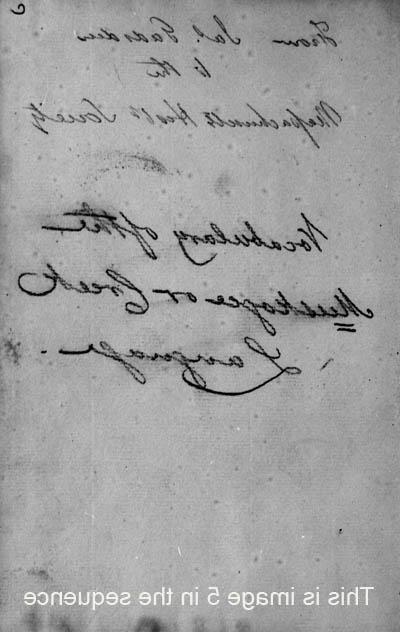 From Jas. Gardner
to the
Massachusetts Hist.l Society
Vocabulary of the
Muskogee or Creek
Language.
This is image 5 in the sequence